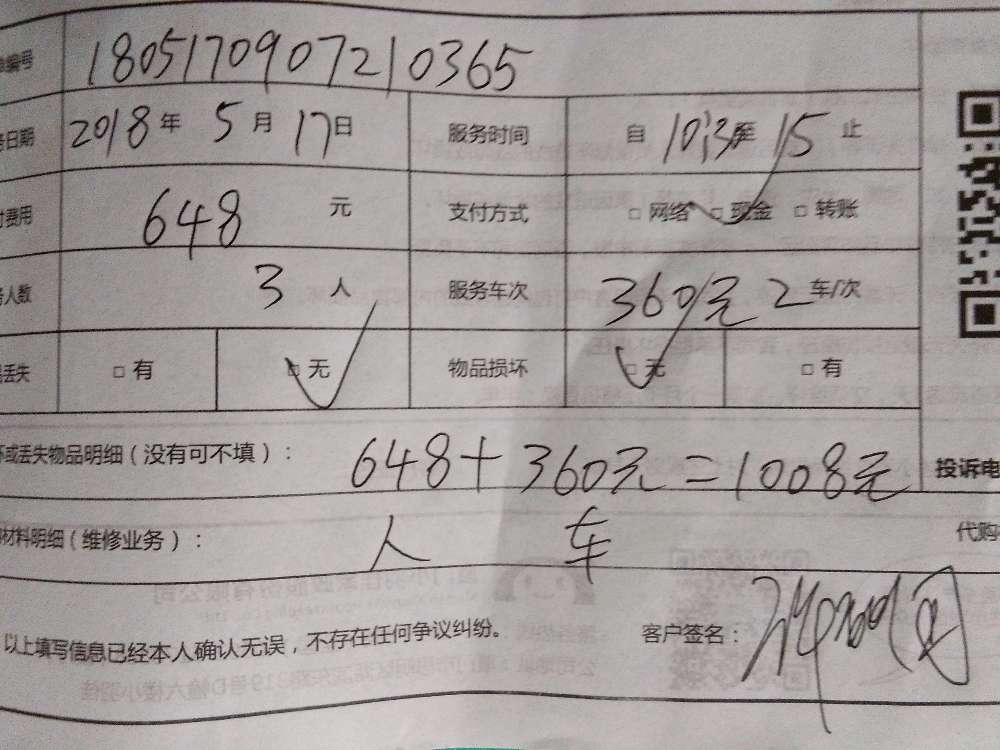 编号 180517090721​0365
务日期 2018年 5月 17日 服务时间 自 10:3 至 15 止
付费用 648 元 支付方式 □ 网络 □ 现金 □ 转账
务人数 3 人 服务车次 360元 2 车/次
丢失 □ 有 □ 无 物品损坏 □ 无 □ 有
坏或丢失物品明细(没有可不填): 648+360元=1008元 投诉电
材料明细(维修业务): 人 车 代购
以上填写信息已经本人确认无误,不存在任何争议纠纷。 客户签名: